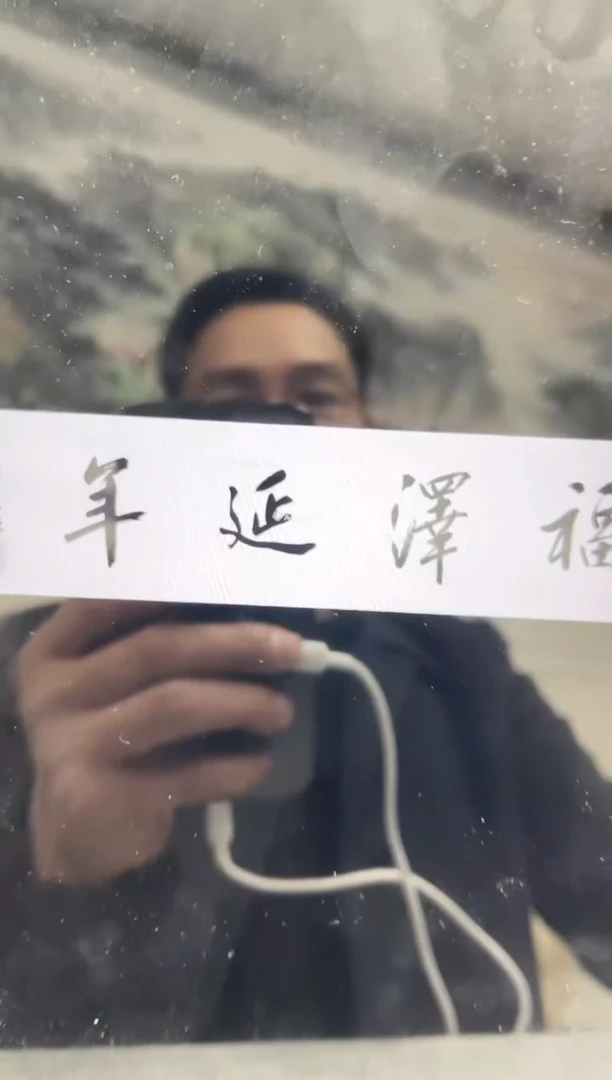 福澤延年